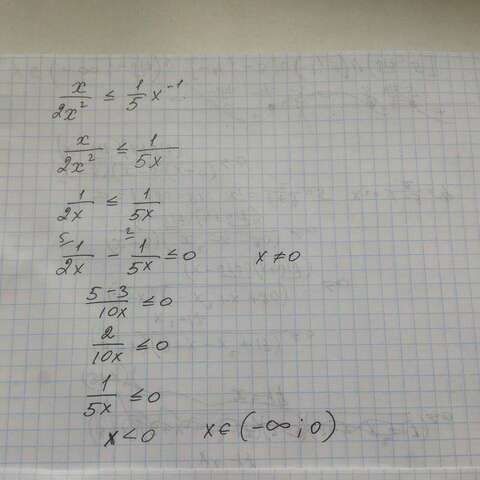 x/2x² ≤ 1/5 x⁻¹
x/2x² ≤ 1/5x
1/2x ≤ 1/5x
⁵⁾1/2x - ²⁾1/5x ≤ 0 x ≠ 0
5-3/10x ≤ 0
2/10x ≤ 0
1/5x ≤ 0
x < 0 x ∈ (-∞; 0)